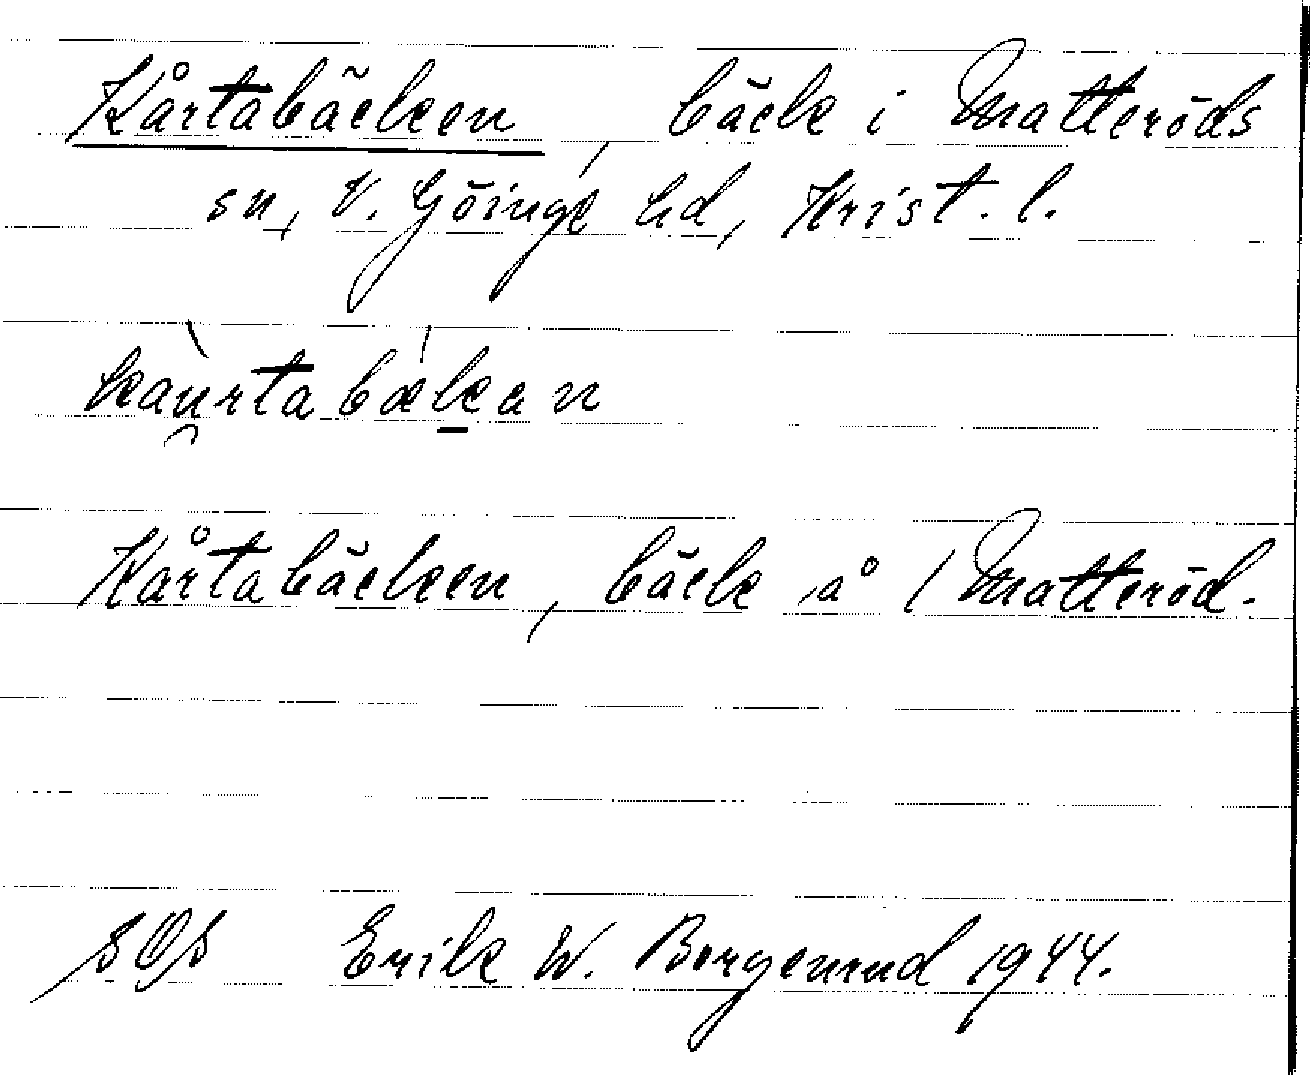 Kårtabäcken, bäck i Matteröds
sn, V. Göinge hd, Krist. l.
kàu̯rtabǽḵan
Kårtabäcken, bäck å / Matteröd.
SOS Erik W. Borgenrud 1944.